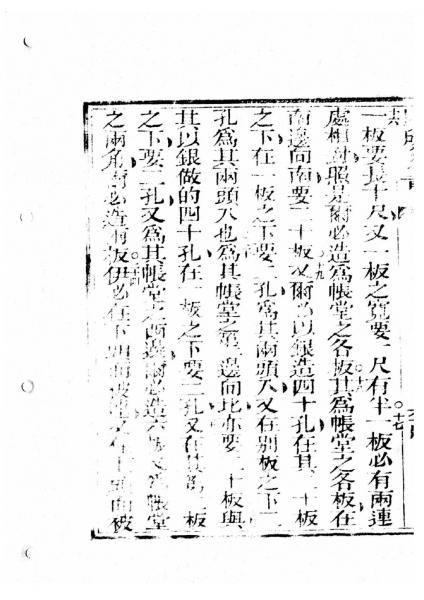 一板要長十尺又一板之寬要一尺有半○十七一板必有兩連
處相對照是爾必造為帳堂之各板○十八其為帳堂之各板在
南邊向南要二十板○十九又爾必以銀造四十孔在其二十板
之下在一板之下要二孔為其兩頭人又在別板之下二
孔為其兩頭人也為其帳堂之第二邊向北亦要二十板與
其以銀做的四十孔在一板之下要二孔又在其別板
之下要二孔又為其帳堂之西邊爾必造六板又為帳堂
之兩角爾必造兩板伊必在下面被